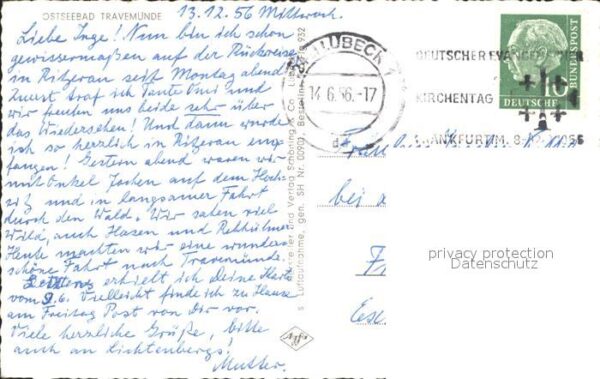 OSTSEEBAD TRAVEMÜNDE
13.12.56 Mittwoch.
Liebe Inge! Nun bin ich schon
gewissermaßen auf der Rückreise
in Ritzerau seit Montag abend!
Zuerst traf ich Tante Omi und
wir freuten uns beide sehr über
das Wiedersehen! Und dann wurde
ich so herzlich in Ritzerau emp-
fangen! Gestern abend waren wir
mit Onkel Jochen auf dem Hoch-
sitz und in langsamer Fahrt
durch den Wald. Wir sahen viel
Wild, auch Hasen und Rebhühner
Heute machten wir eine wunder-
schöne Fahrt nach Travemünde.
erhielt ich Deine Karte
vom 9.6. Vielleicht finde ich zu Hause
am Freitag Post von Dir vor.
Viele herzliche Grüße, bitte
auch an Lichtenbergs!
Mutter.
Luftaufnahme, gen. SH Nr. 00907, Bestellnr.
und Verlag Schöning & Co., Lübeck
932
Agfa
LÜBECK 1
14.6.56.-17
DEUTSCHER EVANG
KIRCHENTAG
FRANKFURT/M. 8.
10
DEUTSCHE
BUNDESPOST
Frau
bei
privacy protection
Datenschutz